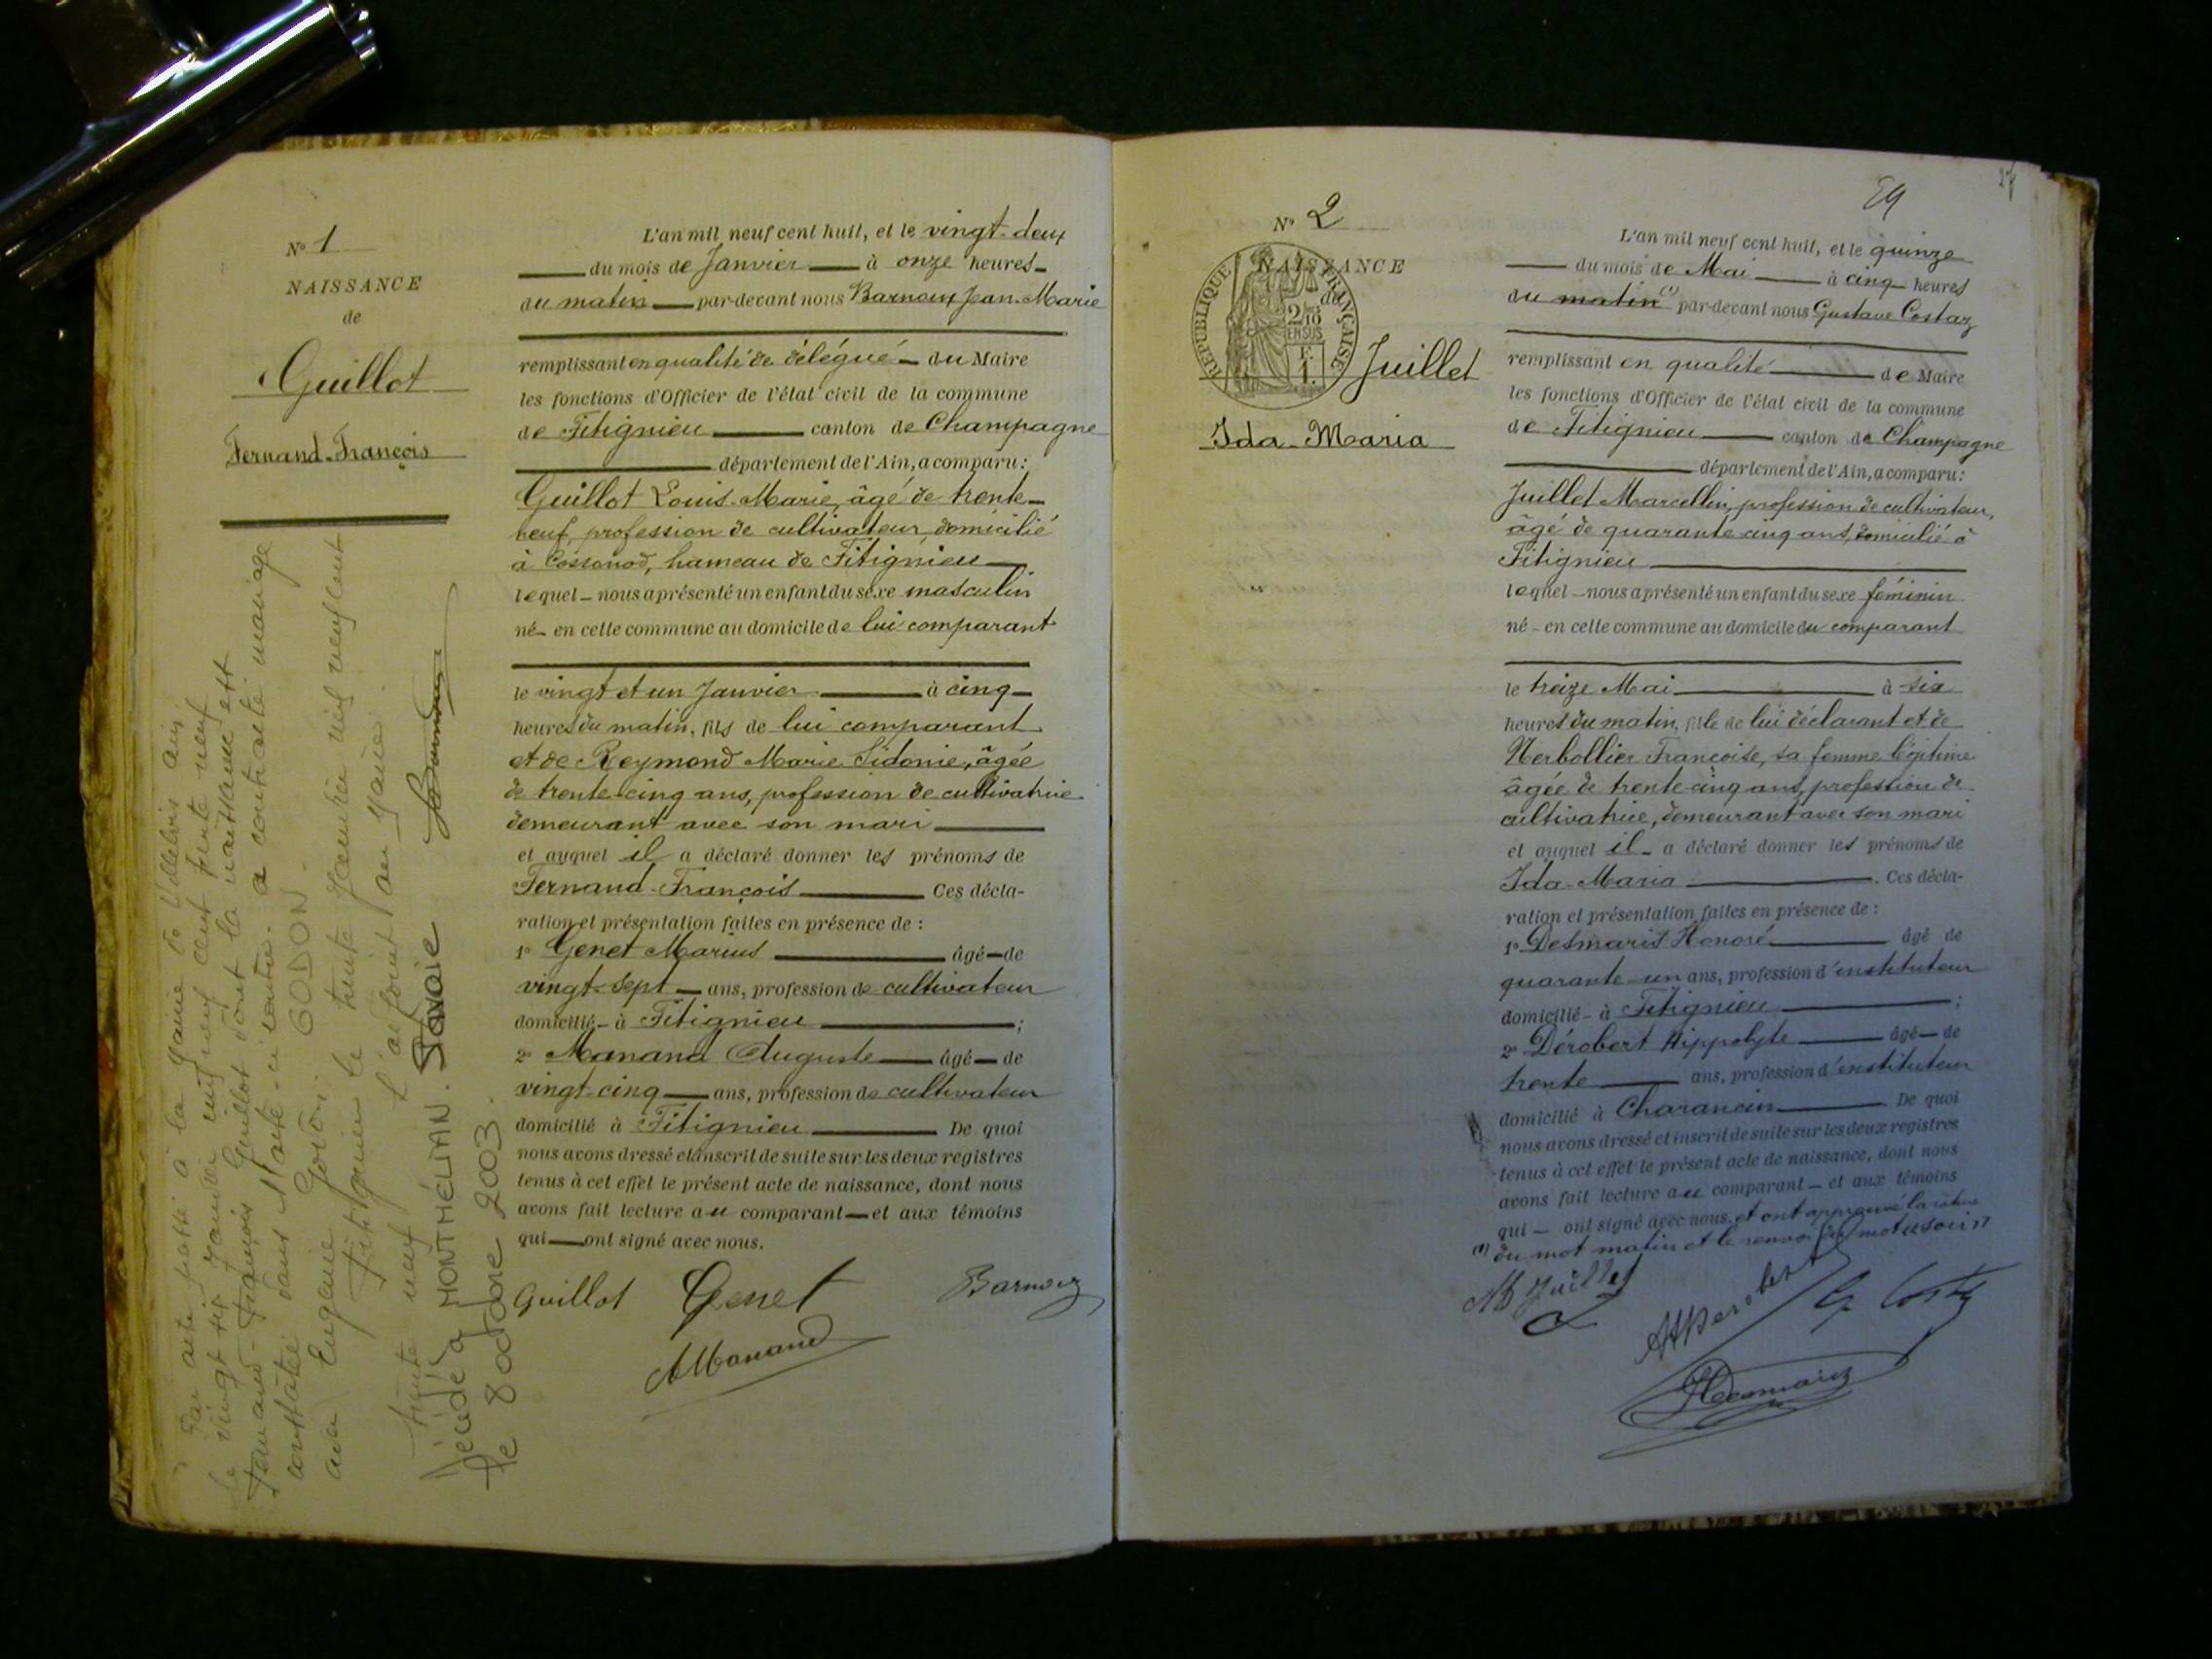 N° 1
NAISSANCE
de
Guillot
Fernand-François
L'an mil neuf cent huit, et le vingt-deux
du mois de Janvier à onze heures
du matin par-devant nous Barnoux Jean-Marie
remplissant en qualité de délégué du Maire
les fonctions d'Officier de l'état civil de la commune
de Fitignieu canton de Champagne
département de l'Ain, a comparu:
Guillot Louis-Marie, âgé de trente-
neuf, profession de cultivateur, domicilié
à Cossonod, hameau de Fitignieu
lequel nous a présenté un enfant du sexe masculin
né en cette commune au domicile de lui comparant
le vingt et un Janvier à cinq
heures du matin, fils de lui comparant
et de Reymond Marie Sidonie, âgée
de trente-cinq ans, profession de cultivatrice
demeurant avec son mari
et auquel il a déclaré donner les prénoms de
Fernand-François Ces décla-
ration et présentation faites en présence de :
1° Genet Marius âgé de
vingt-sept ans, profession de cultivateur
domicilié à Fitignieu ;
2° Manand Auguste âgé de
vingt-cinq ans, profession de cultivateur
domicilié à Fitignieu De quoi
nous avons dressé et inscrit de suite sur les deux registres
tenus à cet effet le présent acte de naissance, dont nous
avons fait lecture au comparant et aux témoins
qui ont signé avec nous.
Guillot Genet Barnoux
A Manand
Par acte passé à la mairie de
le vingt six janvier mil neuf cent trente neuf
Fernand-François Guillot dont la naissance est
constatée dans l'acte ci-contre. a contracté mariage
avec Eugénie GODON.
Fitignieu le trente Janvier mil neuf cent
trente neuf L'adjoint au Maire.
Décédé à MONTMÉLIAN. Savoie
le 8 octobre 2003.
N° 2
NAISSANCE
de
RÉPUBLIQUE FRANÇAISE
2/10
EN SUS
F.
1.
Juillet
Ida-Maria
29
27
L'an mil neuf cent huit, et le quinze
du mois de Mai à cinq heures
du matin (1) par-devant nous Gustave Costaz
remplissant en qualité de Maire
les fonctions d'Officier de l'état civil de la commune
de Fitignieu canton de Champagne
département de l'Ain, a comparu:
Juillet Marcellin, profession de cultivateur,
âgé de quarante-cinq ans, domicilié à
Fitignieu
lequel nous a présenté un enfant du sexe féminin
né en cette commune au domicile du comparant
le treize Mai à six
heures du matin, fille de lui déclarant et de
Nerbollier Françoise, sa femme légitime
âgée de trente-cinq ans, profession de
cultivatrice, demeurant avec son mari
et auquel il a déclaré donner les prénoms de
Ida-Maria . Ces décla-
ration et présentation faites en présence de :
1° Desmaris Honoré âgé de
quarante-un ans, profession d'instituteur
domicilié à Fitignieu ;
2° Dérobert Hippolyte âgé de
trente ans, profession d'instituteur
domicilié à Charancin De quoi
nous avons dressé et inscrit de suite sur les deux registres
tenus à cet effet le présent acte de naissance, dont nous
avons fait lecture au comparant et aux témoins
qui ont signé avec nous. et ont approuvé la rature
(1) du mot matin et le renvoi du mot "soir"
M Juillet
HDerobert G Costaz
HDesmaris